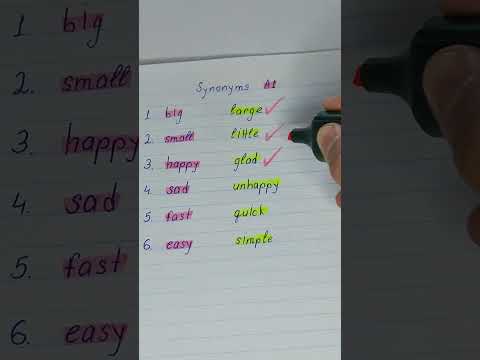 Synonyms A1
1 big large
2. small little
3. happy glad
4. sad unhappy
5 fast quick
6. easy simple
1 big
2. small
3. happy
4. sad
5. fast
6. easy